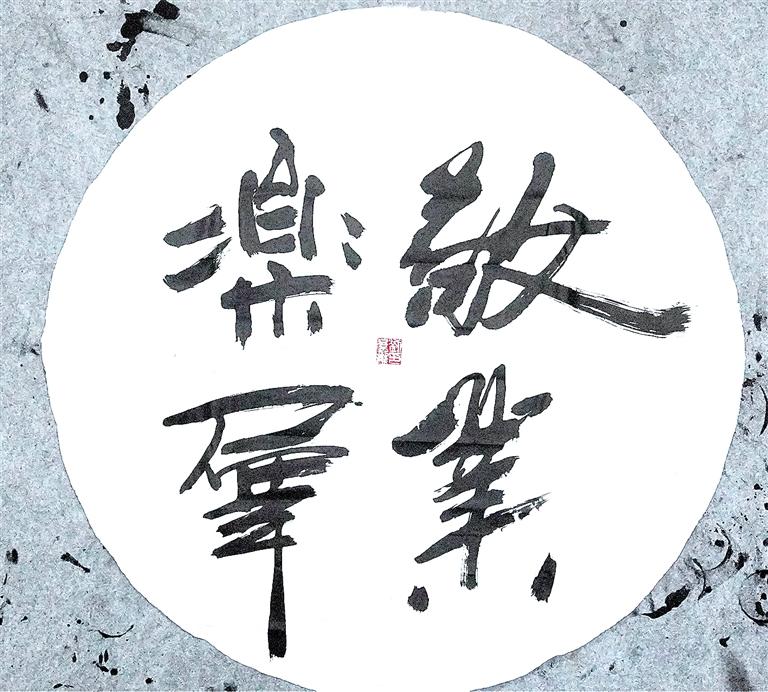 敬業
樂羣